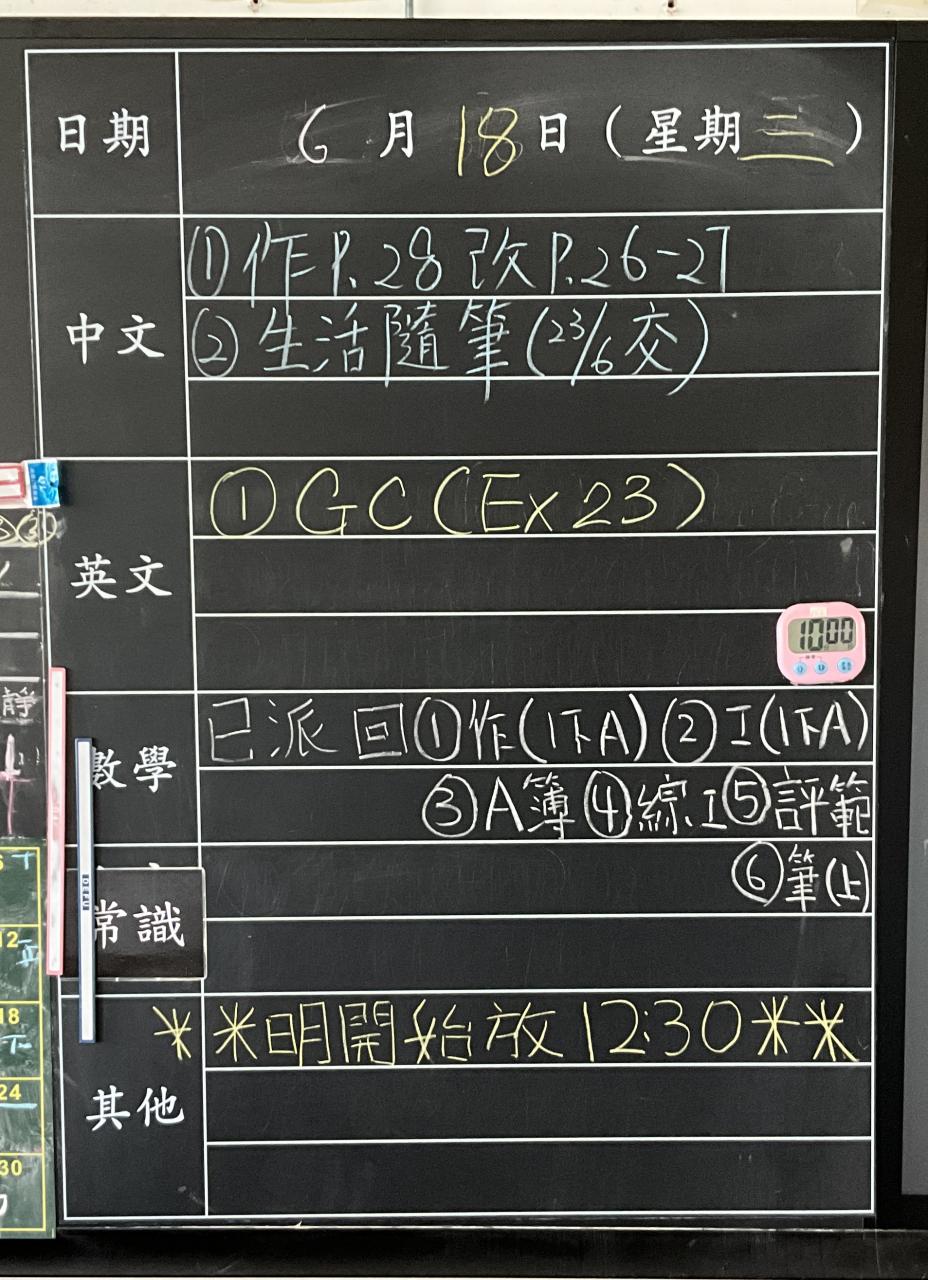 日期 6月18日(星期三)
中文
①作P.28 改P.26-27
②生活隨筆(23/6交)
英文
①GC(Ex 23)
10:00
數學
已派回①作(1下A)②工(1下A)
③A簿④綜工⑤評範
⑥筆(上)
常識
其他
**明開始放12:30**
靜
12
18
24
30